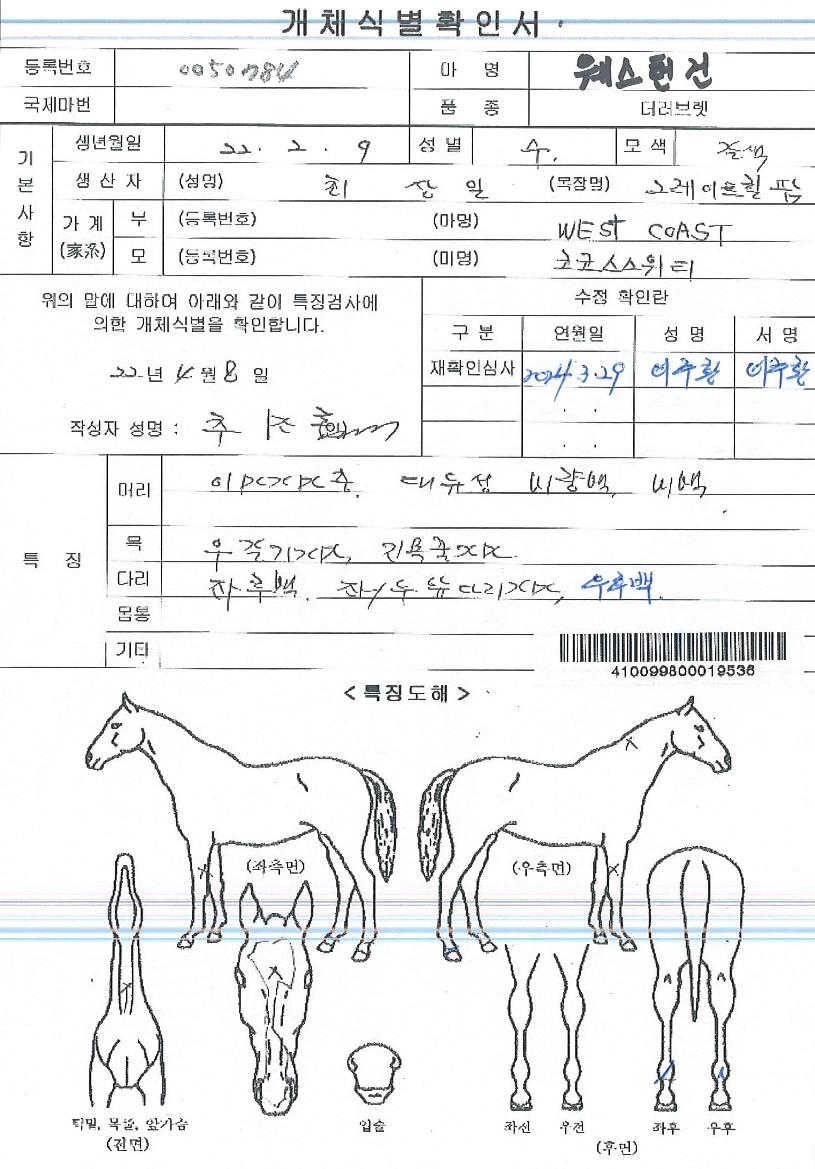 개체식별확인서
등록번호 0050784 마 명 웨스턴건
국제마번 품 종 더러브렛
기본사항
생년월일 22. 2. 9 성 별 수 모 색 갈색
생 산 자 (성명) 최 상 일 (목장명) 그레이트힐 팜
가 계 (家系) 부 (등록번호) (마명) WEST COAST
모 (등록번호) (미명) 코코스스위티
위의 말에 대하여 아래와 같이 특징검사에
의한 개체식별을 확인합니다.
22년 4월 8일
작성자 성명 :
수정 확인란
구 분 연월일 성 명 서 명
재확인심사 2024.3.29 이주환 이주환
. .
. .
특 징
머리 대유성 비량백, 비백
목
다리 좌후백. 우후백.
몸통
기타
410099800019536
< 특징도해 >
(좌측면) (우측면)
턱밑, 목줄, 앞가슴
(전면)
입술
좌전 우전 좌후 우후
(후면)